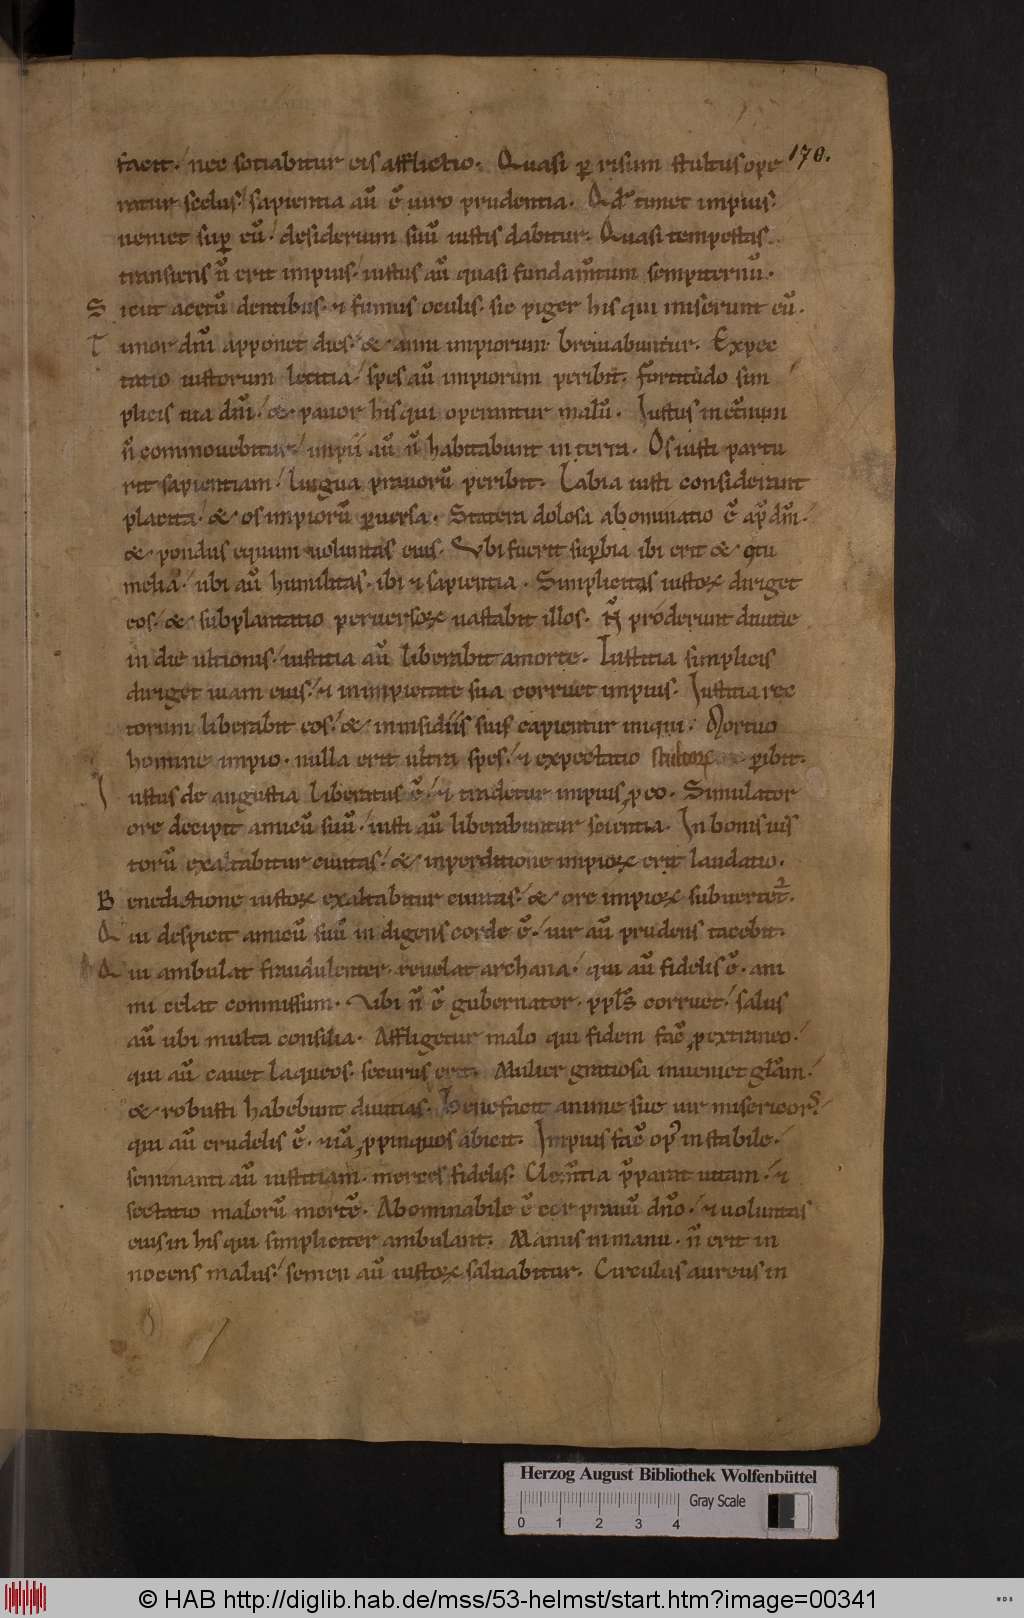 facit. nec sotiabitur eis afflictio. Quasi ꝑ risum stultus ope 170.
ratur scelus. sapientia aū ē uiro prudentia. Qđ timet impius.
ueniet suꝑ eū. desiderium suū iustis dabitur. Quasi tempestas
transiens ñ erit impius. iustus aū quasi fundam̄tum sempiternū.
Sicut acetū dentibus. ⁊ fumus oculis. sic piger his qui miserunt eū.
Timor dn̄i apponet dies. & anni impiorum breuiabuntur. Expec
tatio iustorum letitia. spes aū impiorum peribit. fortitudo sim
plicis uia dn̄i. & pauor his qui operantur malū. Iustus in et̄num
ñ commouebitur. impii aū ñ habitabunt in terra. Os iusti partu
rit sapientiam. lingua prauorū peribit. Labia iusti considerant
placita. & os impiorū ꝑuersa. Statera dolosa abominatio ē ap̄ dn̄m.
& pondus equum uoluntas eius. Vbi fuerit suꝑbia ibi erit & ꝯtu
melia. ubi aū humilitas. ibi ⁊ sapientia. Simplicitas iustoꝝ diriget
eos. & subplantatio peruersoꝝ uastabit illos. Ñ proderunt diuitie
in die ultionis. iustitia aū liberabit a morte. Iustitia simplicis
diriget uiam eius. ⁊ in impietate sua corruet impius. Iustitia rec
torum liberabit eos. & in insidiis suis capientur iniqui. Mortuo
homine impio. nulla erit ultra spes. ⁊ expectatio stultoꝝ ꝑibit.
Iustus de angustia liberatus ē. ⁊ tradetur impius ꝓ eo. Simulator
ore decipit amicū suū. iusti aū liberabuntur scientia. In bonis ius
torū exaltabitur ciuitas. & in perditione impioꝝ erit laudatio.
Benedictione iustoꝝ exaltabitur ciuitas. & ore impioꝝ subuertet᷑.
Qui despicit amicū suū indigens corde ē. uir aū prudens tacebit.
Qui ambulat fraudulenter. reuelat archana. qui aū fidelis ē. ani
mi celat commissum. Vbi ñ ē gubernator. ppl̄s corruet. salus
aū ubi multa consilia. Affligetur malo qui fidem fac̄ ꝓ extraneo.
qui aū cauet laqueos. securus erit. Mulier gratiosa inueniet gl̄am.
& robusti habebunt diuitias. Benefacit anime sue uir misericors.
qui aū crudelis ē. ⁊iā ꝓpinquos abicit. Impius fac̄ opꝰ instabile.
seminanti aū iustitiam. merces fidelis. Clem̄tia p̄parat uitam. ⁊
sectatio malorū mortē. Abominabile ē cor prauū dn̄o. ⁊ uoluntas
eius in his qui simpliciter ambulant. Manus in manu. ñ erit in
nocens malus. semen aū iustoꝝ saluabitur. Circulus aureus in
Herzog August Bibliothek Wolfenbüttel
Gray Scale
0 1 2 3 4
© HAB http://diglib.hab.de/mss/53-helmst/start.htm?image=00341